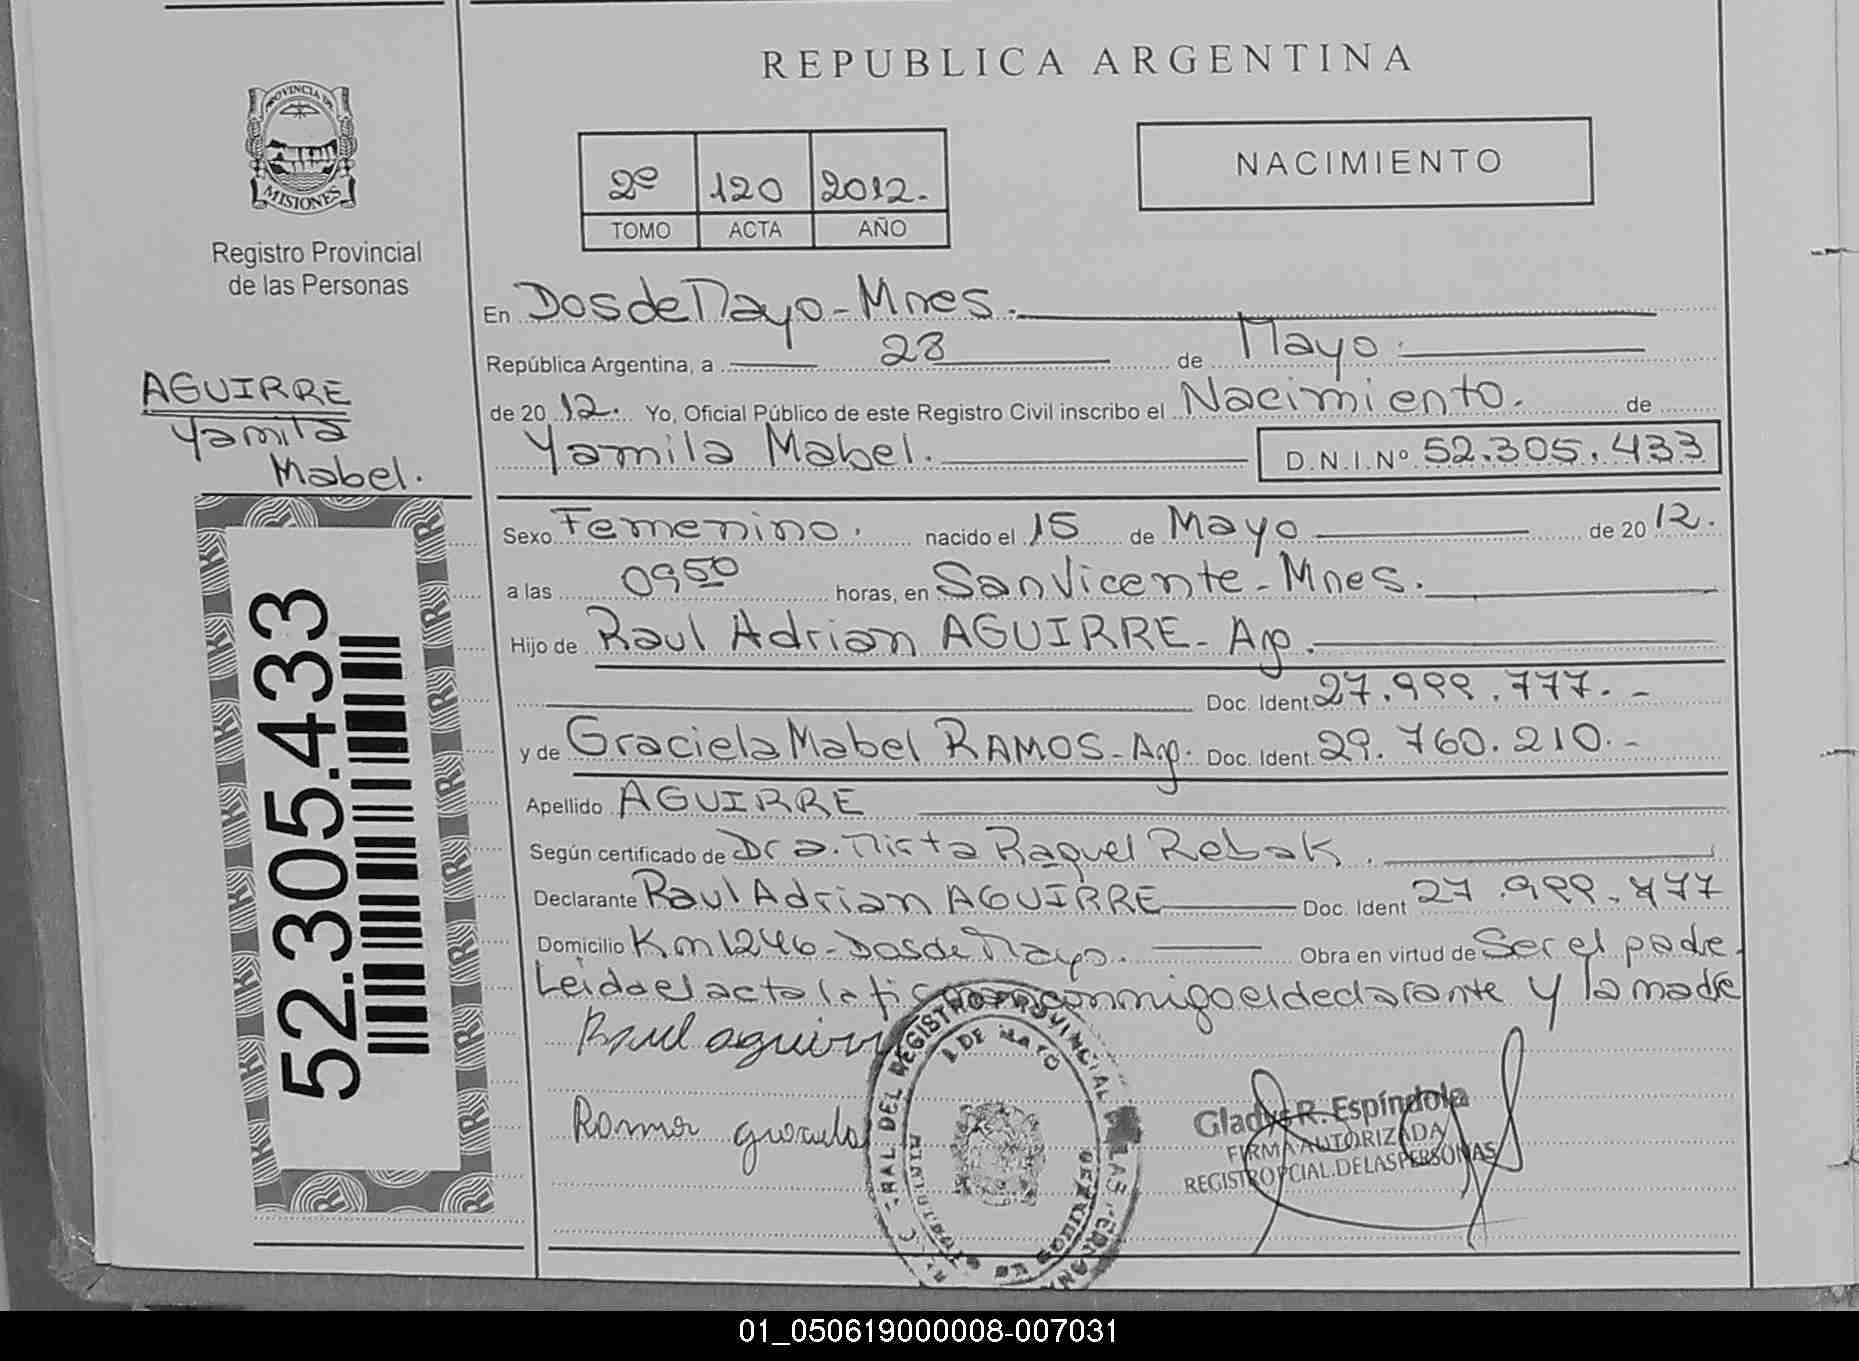 REPUBLICA ARGENTINA
PROVINCIA DE
MISIONES
Registro Provincial
de las Personas
2º 120 2012.
TOMO ACTA AÑO
NACIMIENTO
En Dos de Mayo - Mnes.
República Argentina, a 28 de Mayo
de 2012. Yo, Oficial Público de este Registro Civil inscribo el Nacimiento. de
Yamila Mabel. D.N.I.Nº 52.305.433
AGUIRRE
Yamila
Mabel.
52.305.433
Sexo Femenino. nacido el 15 de Mayo de 2012.
a las 0950 horas, en San Vicente - Mnes.
Hijo de Raul Adrian AGUIRRE - Arg.
Doc. Ident. 27.999.777.-
y de Graciela Mabel RAMOS - Arg. Doc. Ident. 29.760.210.-
Apellido AGUIRRE
Según certificado de Dra. Mirta Raquel Rebak.
Declarante Raul Adrian AGUIRRE Doc. Ident 27.999.777
Domicilio Km 1246 - Dos de Mayo. Obra en virtud de Ser el padre.
Leida el acta la conmigo el declarante y la madre
Raul aguirre
REGISTRO PROVINCIAL DE LAS
2 DE MAYO
Gladys R. Espíndola
FIRMA AUTORIZADA
REGISTRO PCIAL. DE LAS PERSONAS
01_050619000008-007031